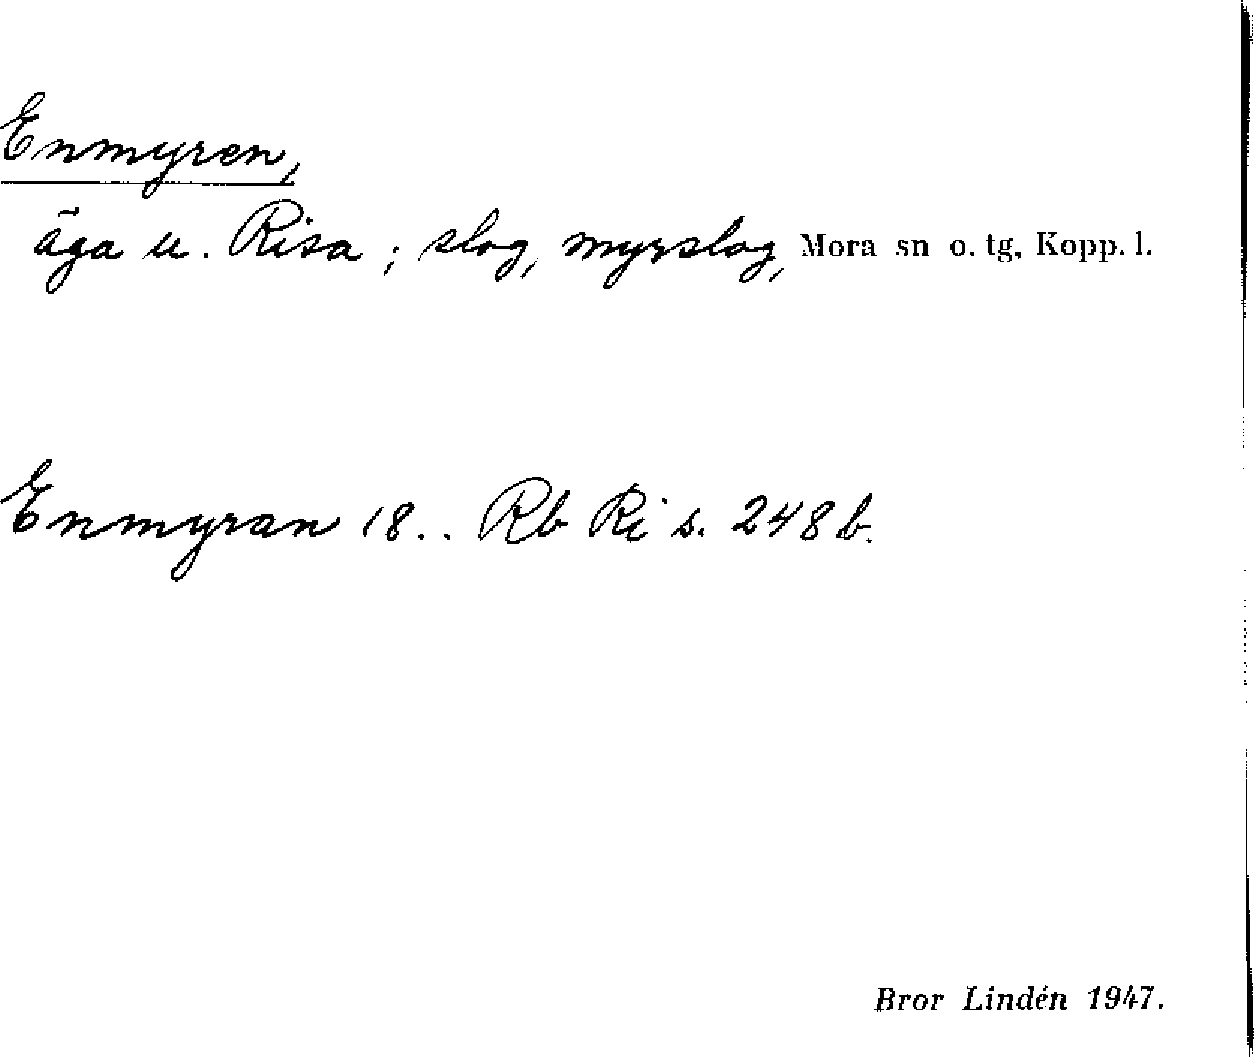 Enmyren,
äga u. Risa; slog, myrslog, Mora sn o. tg, Kopp. l.
Enmyran 18.. Rb Ri s. 248 b.
Bror Lindén 1947.